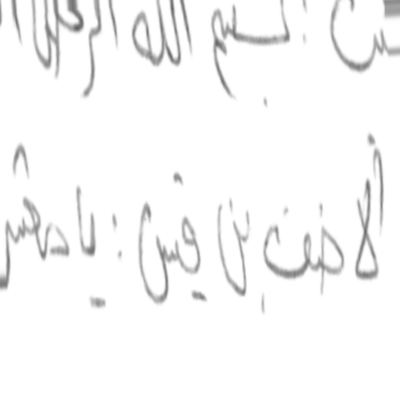 : بسم الله الرحمن
الأحنف بن قيس : يا معشر